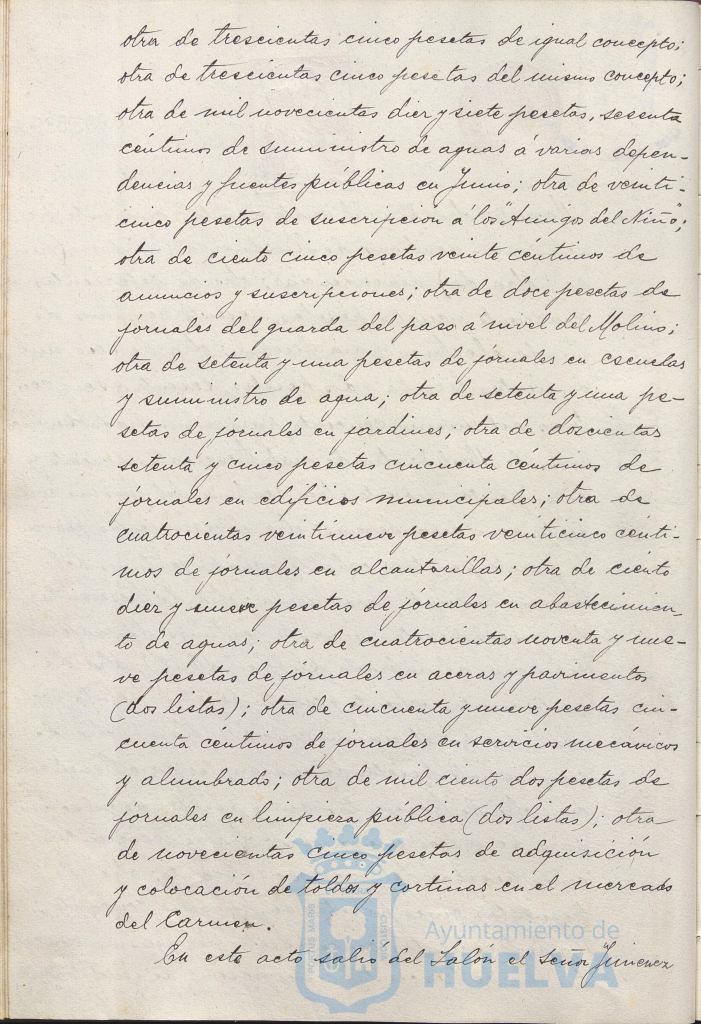 otra de trescientas cinco pesetas de igual concepto;
otra de trescientas cinco pesetas del mismo concepto;
otra de mil novecientas diez y siete pesetas, sesenta
céntimos de suministro de aguas á varias depen-
dencias y fuentes públicas en Junio; otra de veinti-
cinco pesetas de suscripcion á los "Amigos del Niño";
otra de ciento cinco pesetas veinte céntimos de
anuncios y suscripciones; otra de doce pesetas de
jornales del guarda del paso á nivel del Molino;
otra de setenta y una pesetas de jornales en escuelas
y suministro de agua; otra de setenta y una pe-
setas de jornales en jardines; otra de doscientas
setenta y cinco pesetas cincuenta céntimos de
jornales en edificios municipales; otra de
cuatrocientas veintinueve pesetas veinticinco cénti-
mos de jornales en alcantarillas; otra de ciento
diez y nueve pesetas de jornales en abastecimien-
to de aguas; otra de cuatrocientas noventa y nue-
ve pesetas de jornales en aceras y pavimentos
(dos listas); otra de cincuenta y nueve pesetas cin-
cuenta céntimos de jornales en servicios mecánicos
y alumbrado; otra de mil ciento dos pesetas de
jornales en limpieza pública (dos listas); otra
de novecientas cinco pesetas de adquisición
y colocación de toldos y cortinas en el mercado
del Carmen.
En este acto salió del Salón el señor Jimenez
Ayuntamiento de
HUELVA